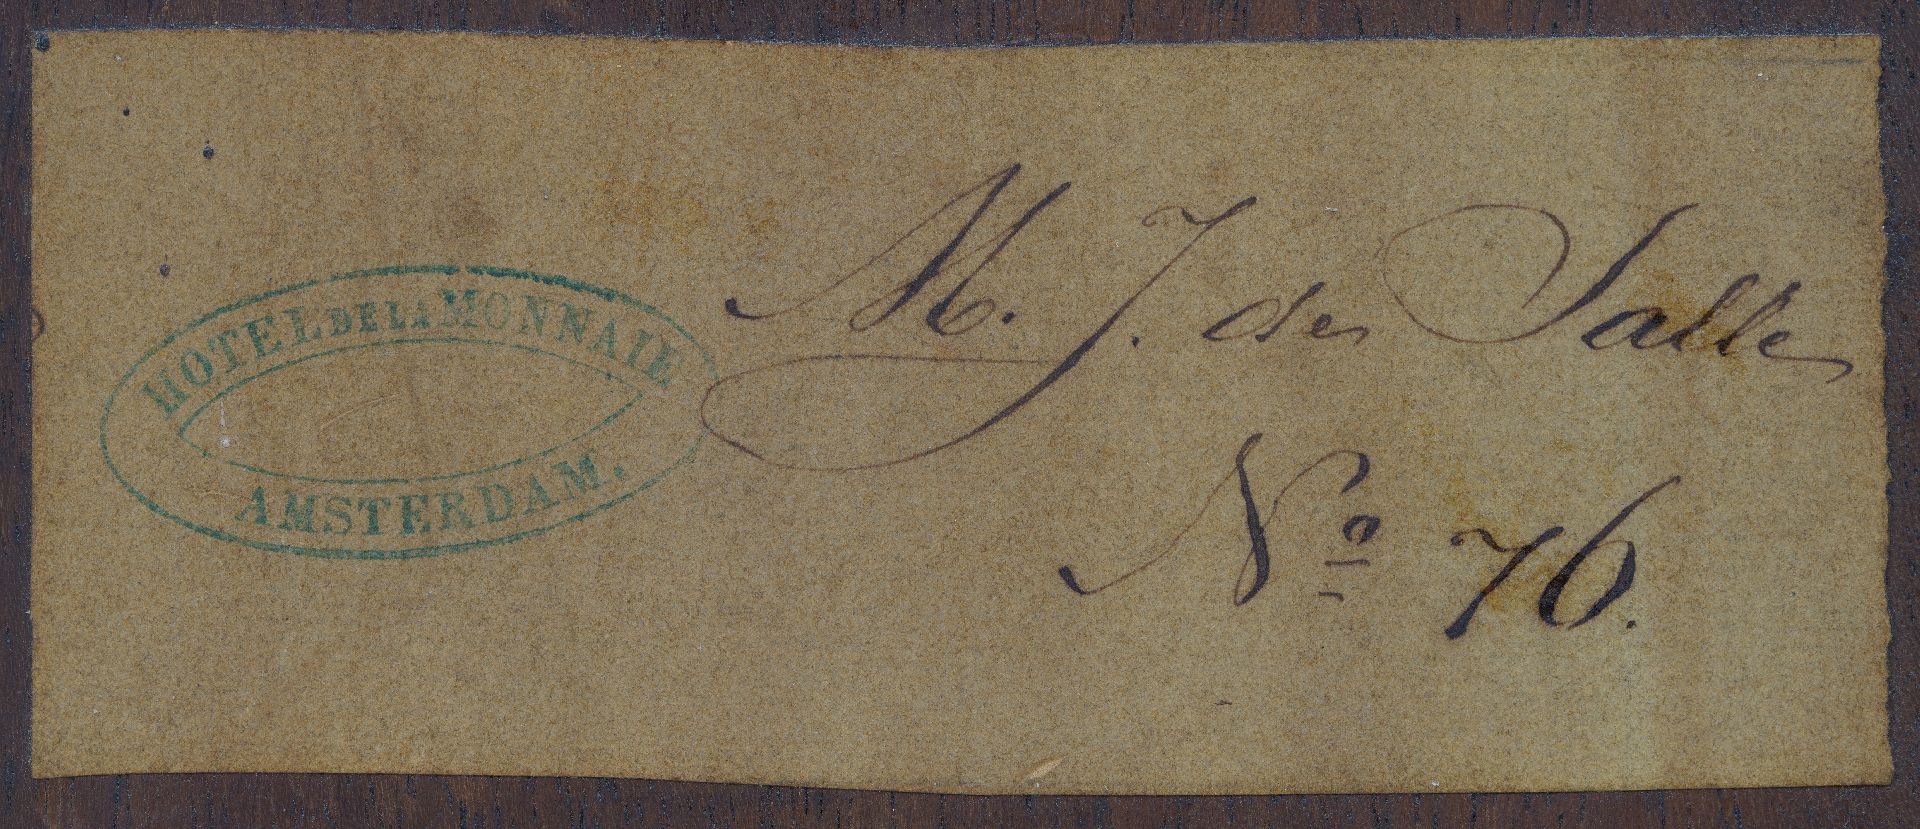 HOTEL DE LA MONNAIE
AMSTERDAM.
M. J. de Salle
No 76.